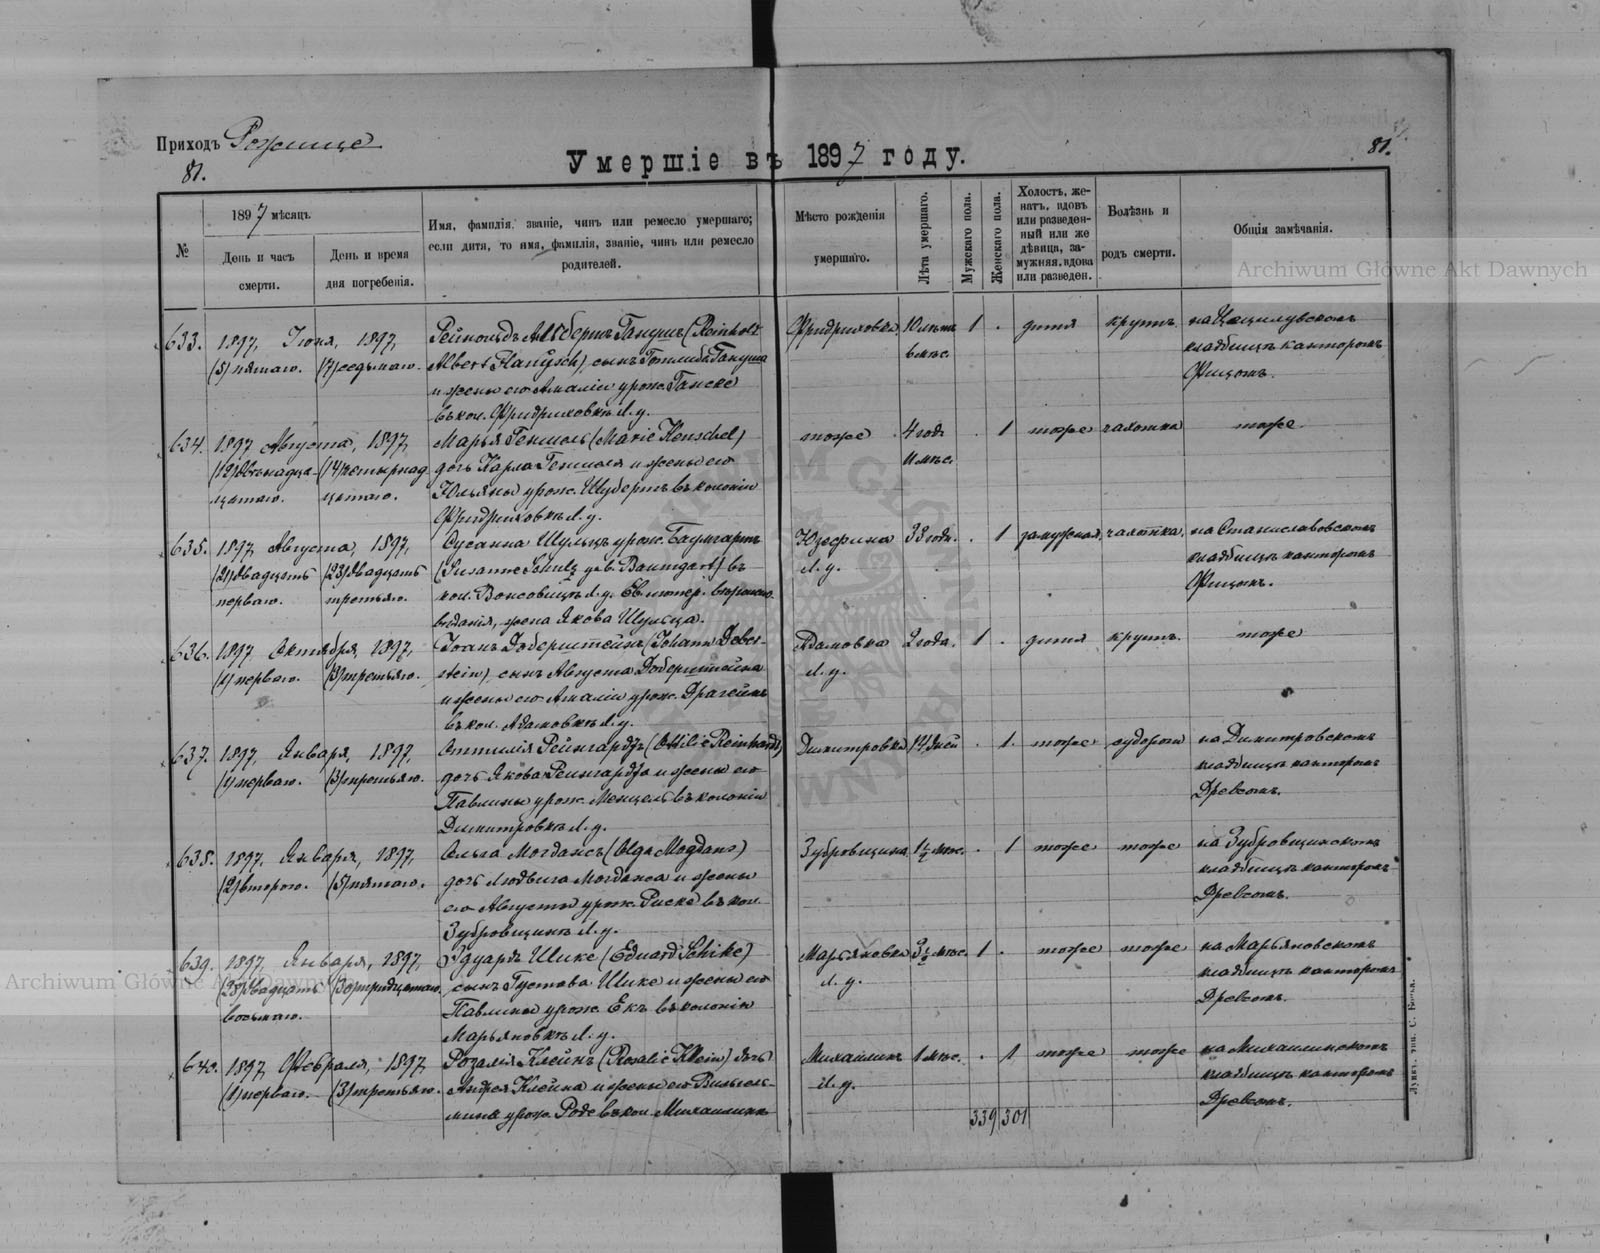 Приходъ Рожище
81.
Умершіе въ 1897 году.
81.
№
1897 мѣсяцъ
День и часъ смерти.
День и время дня погребенія.
Имя, фамилія, званіе, чинъ или ремесло умершаго;
если дитя, то имя, фамилія, званіе, чинъ или ремесло
родителей.
Мѣсто рожденія
умершаго.
Лѣта умершаго.
Мужскаго пола.
Женскаго пола.
Холостъ, же-
натъ, вдовъ
или разведен-
ный или же
дѣвица, за-
мужняя, вдова
или разведен.
Болѣзнь и
родъ смерти.
Общія замѣчанія.
Archiwum Główne Akt Dawnych
633. 1897, Іюня, 1897, Рейнольдъ Альбертъ Ганушъ (Reinholt Фридриховка 1 . дитя крупъ на
(5) пятаго. (7) седьмаго. Albert Hanusch), сынъ Готлиба Гануша 6 мѣс. кладбищѣ канторомъ
и жены его Амаліи урож. Ганске Фицомъ.
въ кол. Фридриховкѣ Л. у.
634. 1897 Августа, 1897, Марья Геншель (Marie Henschel) тоже 4 год. . 1 тоже чахотка тоже
(12) двѣнадца- (14) четырнад дочь Карла Геншеля и жены его 11 мѣс.
цатаго. цатаго. Юльяны урож. Шубертъ въ колоніи
Фридриховкѣ Л. у.
635. 1897 Августа, 1897, Сусанна Шульцъ урож. Баумгартъ Юзефина 33 года. . 1 замужная. чахотка. на Станиславовскомъ
(21) двадцать (23) двадцать (Susanne Schulz geb. Baumgart) въ Л. у. кладбищѣ канторомъ
перваго. третьяго. кол. Л. у. Ев. лютер. вѣроиспо- Фицомъ.
вѣданія, жена Якова Шульца.
636. 1897 Октября, 1897, Іоанъ Доберштейнъ (Johann Dober- Адамовка 2 года. 1 . дитя крупъ. тоже
(1) перваго. (3) третьяго. stein), сынъ Августа Доберштейна Л. у.
и жены его Амаліи урож. Драгеймъ
въ кол. Адамовкѣ Л. у.
637. 1897, Января, 1897, Оттилія Рейнгардтъ (Ottilie Reinhardt), Димитровка 14 дней . 1. тоже судороги на Димитровскомъ
(1) перваго. (3) третьяго. дочь Якова Рейнгардта и жены его кладбищѣ канторомъ
Павлины урож. Менцель въ колоніи Древсомъ.
Димитровкѣ Л. у.
638. 1897, Января, 1897, Ольга Могдансъ (Olga Mogdans) Зубровщина 1½ мѣс. . 1 тоже тоже на Зубровщинскомъ
(2) втораго. (5) пятаго. дочь Людвига Могданса и жены кладбищѣ канторомъ
его Августы урож. Риске въ кол. Древсомъ.
Зубровщинѣ Л. у.
639. 1897, Января, 1897, Эдуардъ Шике (Eduard Schike) Марьяновка 3½ мѣс. 1 . тоже тоже на Марьяновскомъ
(28) двадцать (30) тридцатаго. сынъ Густава Шике и жены его Л. у. кладбищѣ канторомъ
восьмаго. Павлины урож. Екъ въ колоніи Древсомъ.
Марьяновкѣ Л. у.
640. 1897, Февраля, 1897, Розалія Клейнъ (Rosalie Klein) дочь Михаилинъ 1 мѣс. . 1 тоже тоже на Михаилинскомъ
(1) перваго. (3) третьяго. Андрея Клейна и жены его Вильгель- Л. у. кладбищѣ канторомъ
мины урож. Роде въ кол. Михаилинѣ Древсомъ.
339 301
Archiwum Główne Akt Dawnych